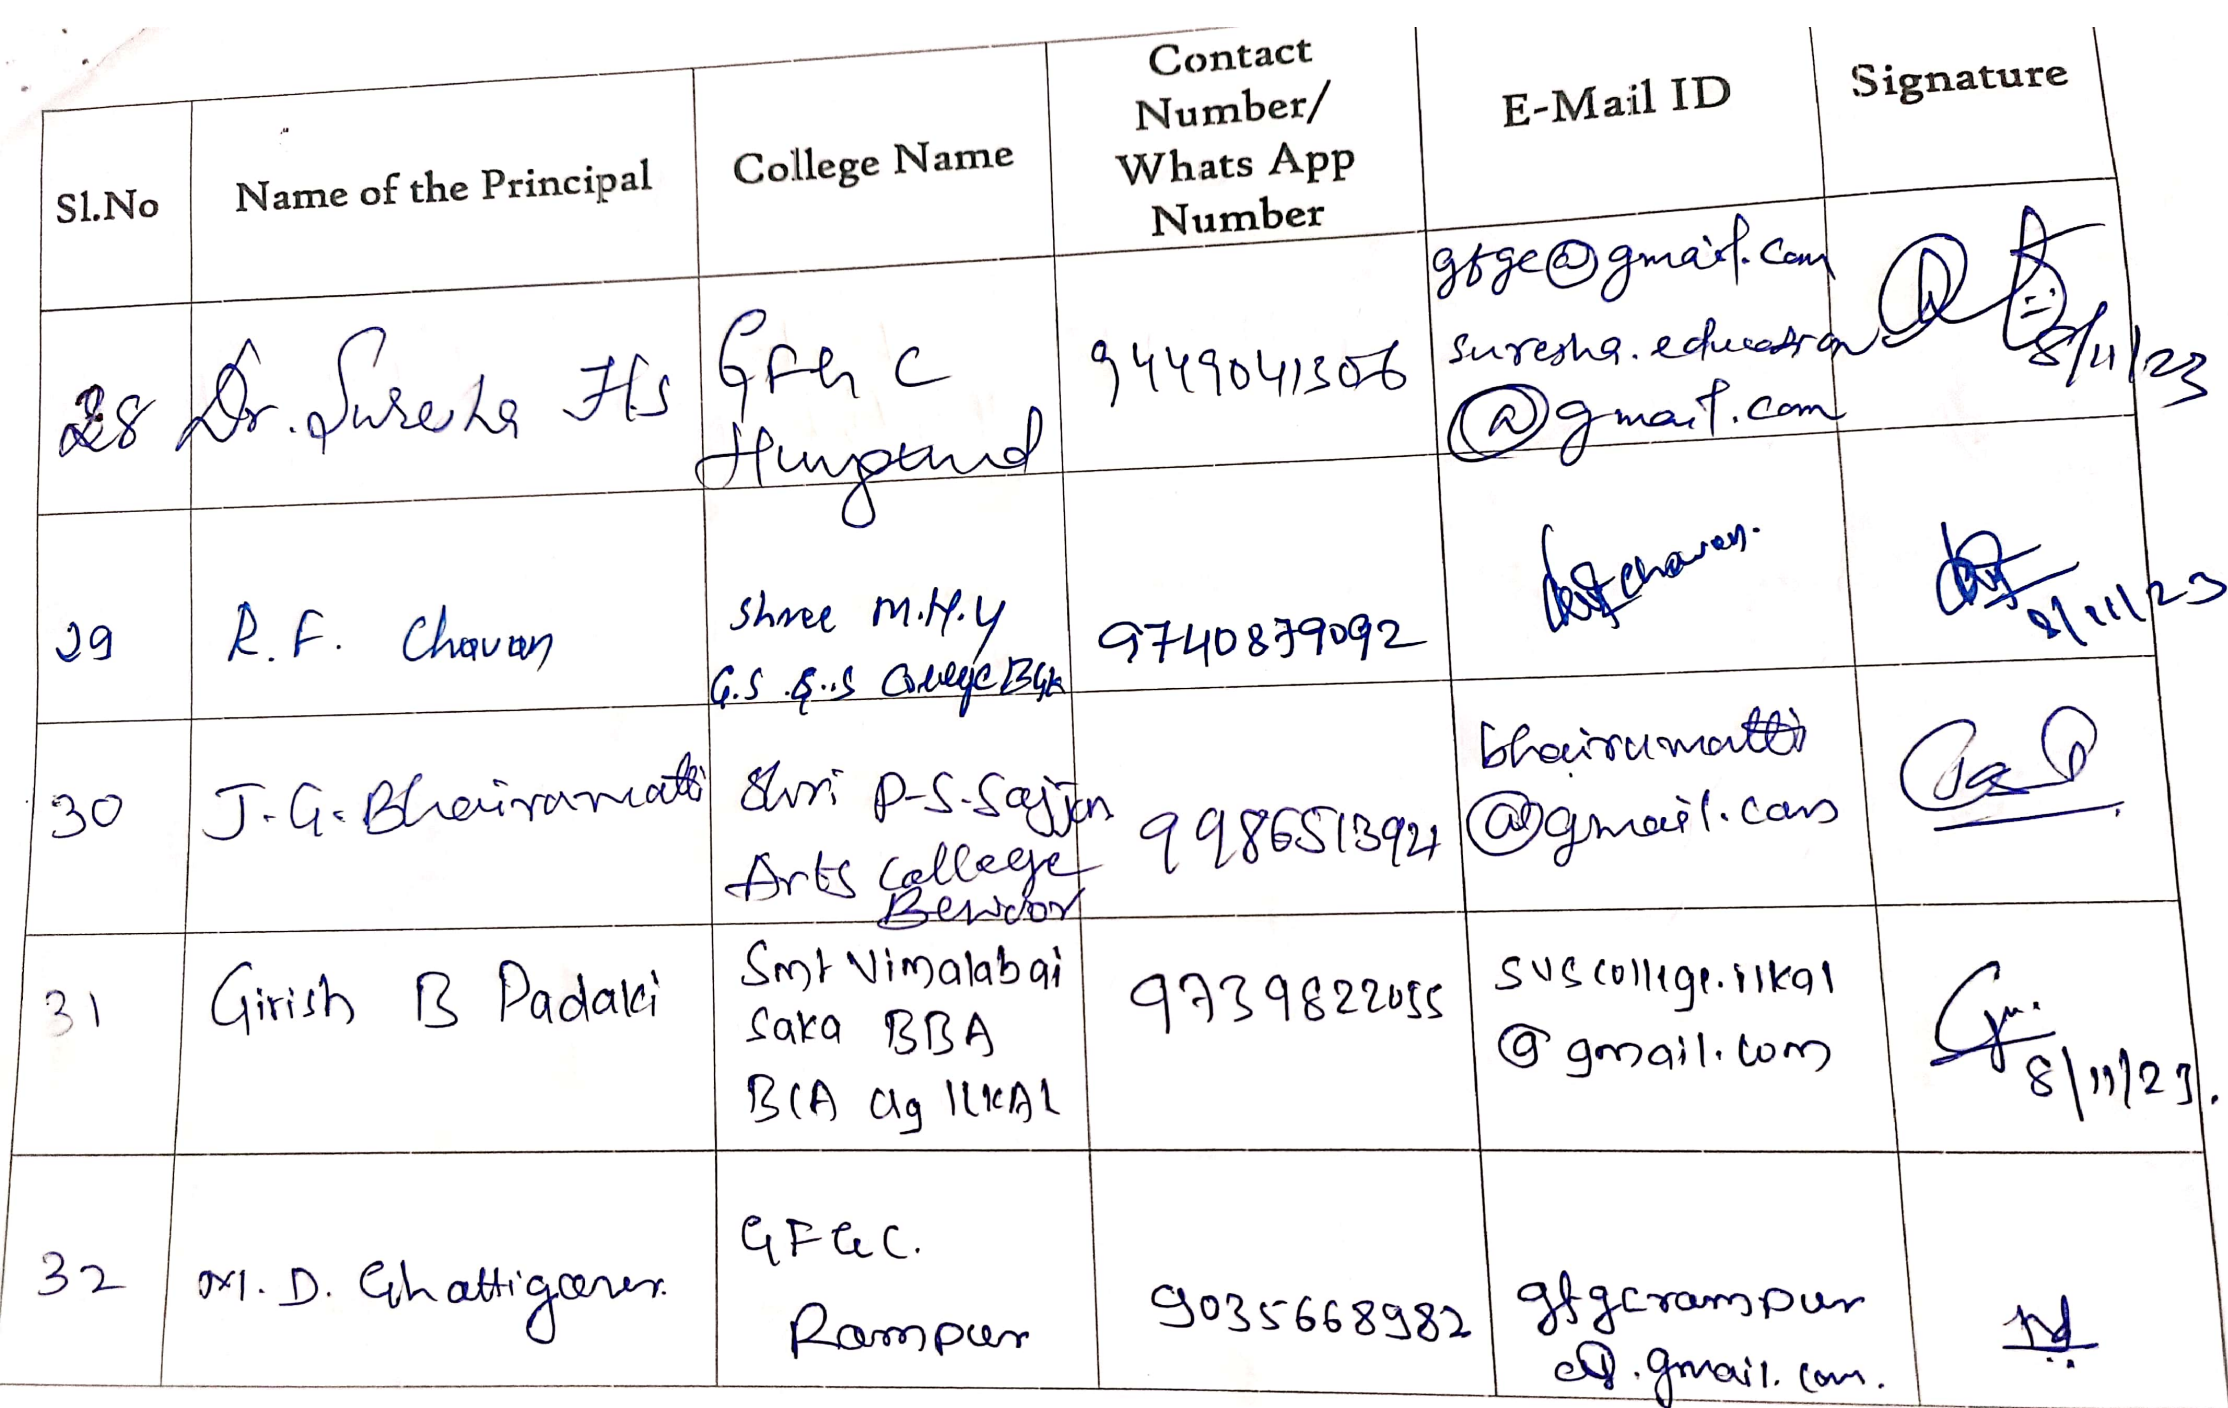 Sl.No
Name of the Principal
College Name
Contact
Number/
Whats App
Number
E-Mail ID
Signature
28
Dr. Suresha Hs
GFGC
Hungund
9449041306
gfgc@gmail.com
suresha.education
@gmail.com
8/11/23
29
R. F. Chavan
Shree M.H.Y
G.S College BGK
9740879092
chavan.
8/11/23
30
J. G. Bhairamatti
Shri P-S-Sajjan
Arts College
Bewoor
bhairumatti
@gmail.com
31
Girish B Padaki
Smt Vimalabai
Saka BBA
BCA Clg ILKAL
9739822055
svscollege.ilkal
@gmail.com
8/11/23.
32
M. D. Ghattiganer.
GFGC.
Rampur
9035668982
gfgcrampur
@.gmail.com.